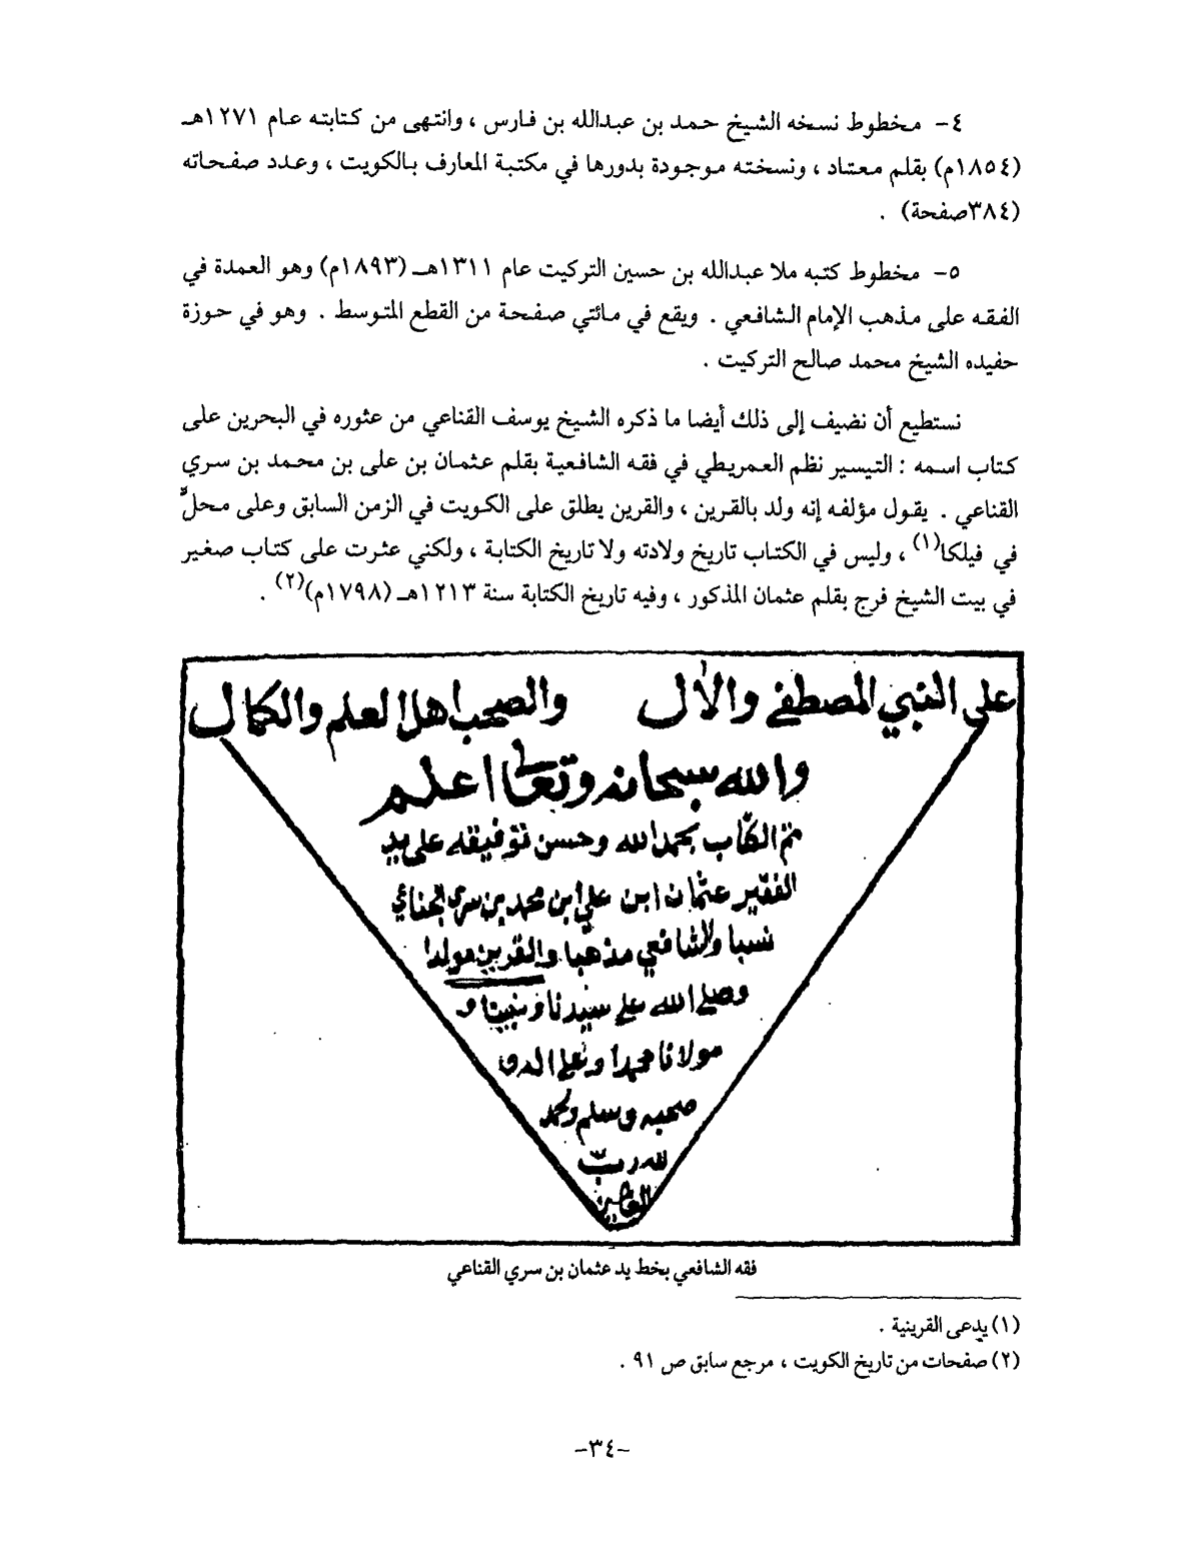 ٤- مخطوط نسخه الشيخ حمد بن عبدالله بن فارس ، وانتهى من كتابته عام ١٢٧١هـ
(١٨٥٤م) بقلم معتاد ، ونسخته موجودة بدورها في مكتبة المعارف بالكويت ، وعدد صفحاته
(٣٨٤صفحة) .
٥- مخطوط كتبه ملا عبدالله بن حسين التركيت عام ١٣١١هـ (١٨٩٣م) وهو العمدة في
الفقه على مذهب الإمام الشافعي . ويقع في مائتي صفحة من القطع المتوسط . وهو في حوزة
حفيده الشيخ محمد صالح التركيت .
نستطيع أن نضيف إلى ذلك أيضا ما ذكره الشيخ يوسف القناعي من عثوره في البحرين على
كتاب اسمه : التيسير نظم العمريطي في فقه الشافعية بقلم عثمان بن على بن محمد بن سري
القناعي . يقول مؤلفه إنه ولد بالقرين ، والقرين يطلق على الكويت في الزمن السابق وعلى محلٍّ
في فيلكا(١) ، وليس في الكتاب تاريخ ولادته ولا تاريخ الكتابة ، ولكني عثرت على كتاب صغير
في بيت الشيخ فرج بقلم عثمان المذكور ، وفيه تاريخ الكتابة سنة ١٢١٣هـ (١٧٩٨م)(٢) .
على النبي المصطفى والآل والصحب اهل العلم والكمال
والله سبحانه وتعالى اعلم
تم الكتاب بحمد الله وحسن توفيقه على يد
الفقير عثمان ابن علي ابن محمد بن سري
نسبا والشافعي مذهبا والقرين مولدا
وصلى الله على سيدنا ونبينا و
مولانا محمدا وعلى اله و
صحبه وسلم والحمد
لله رب
العالمين
فقه الشافعي بخط يد عثمان بن سري القناعي
(١) يدعى القرينية .
(٢) صفحات من تاريخ الكويت ، مرجع سابق ص ٩١ .
-٣٤-